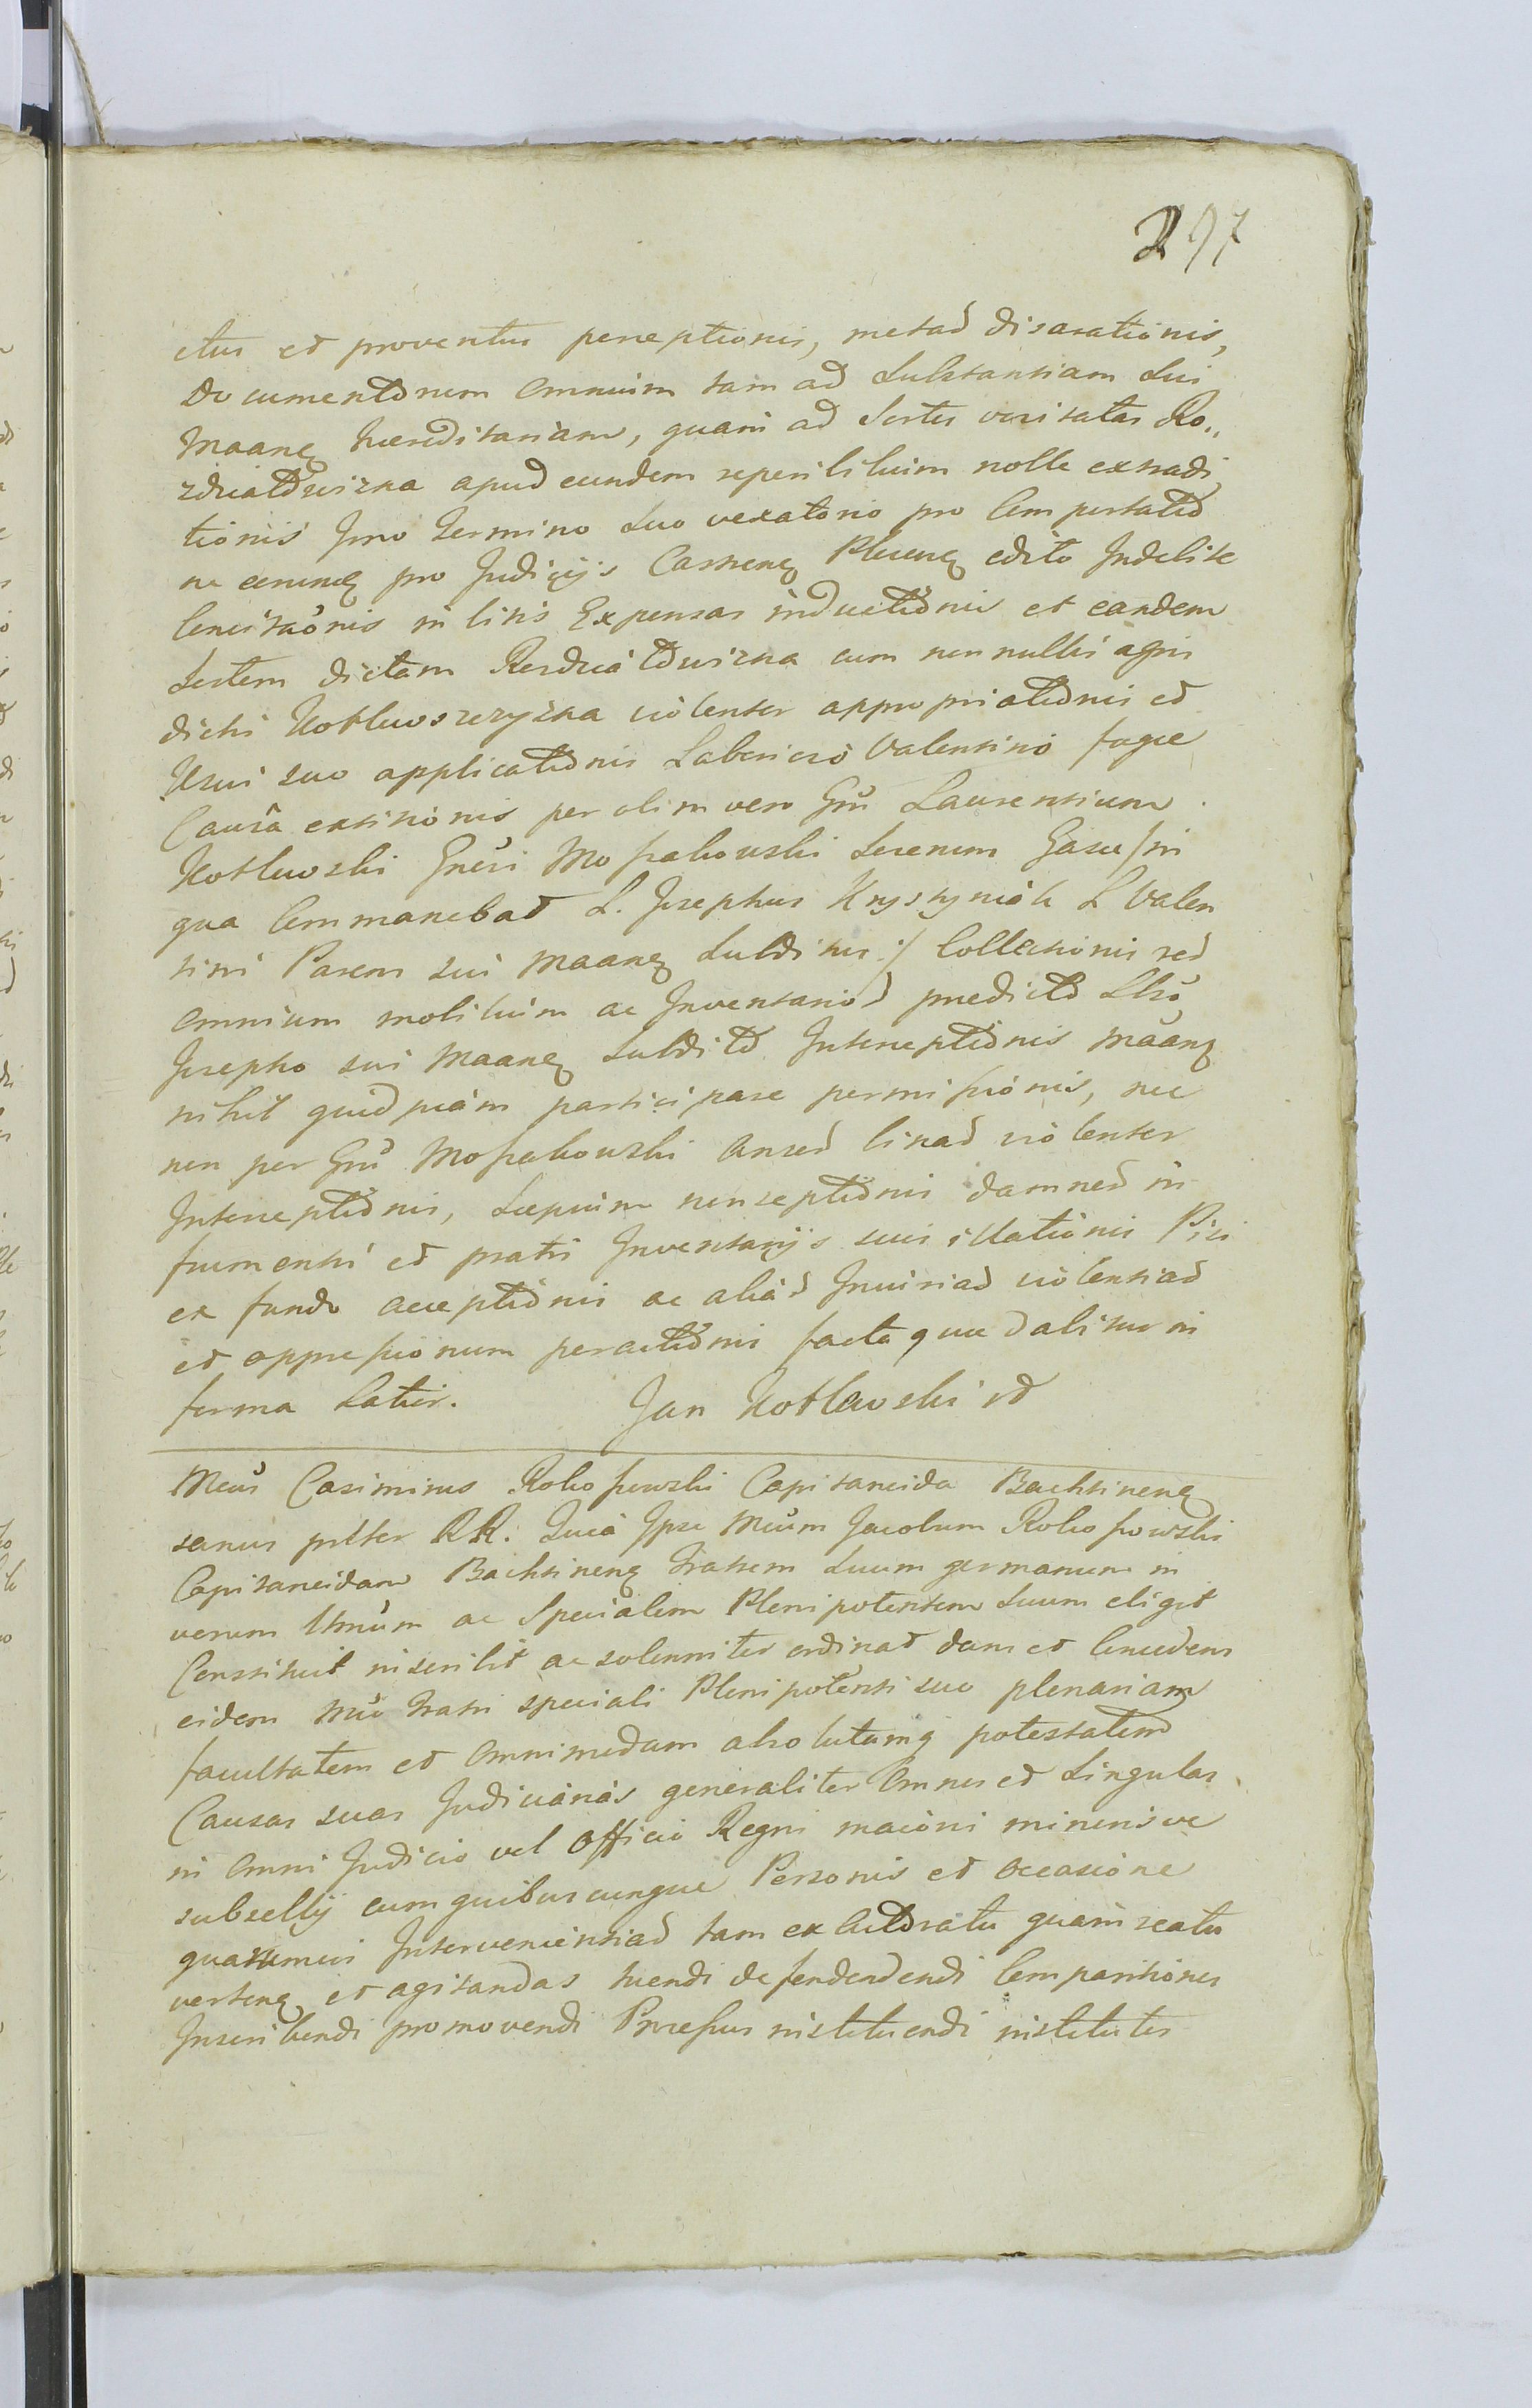 297
ctus et proventus perceptionis, metarum disarationis,
Documentorum omnium tam ad Substantiam Sui
Maanq haereditariam, quam ad Sortes vocitatas Ro„
zdrialowizna apud eundem reperibilium nolle extradi
tionis Imo Termino Suo vexatorio pro Comportatio
ne eorumq pro Judicijs Castrenq Plocenq edito Indebite
in litis Expensas inductionis et eandem
Sortem dictam cum nonnullis agris
dictis Kotlowszczyzna violenter appropriationis et
Usui suo applicationis Laborioso Valentino fugae
Causa extitionis per olim vero Gnu Laurentium
Kotlewski Gnesi Mossakowski Socerum Gasae /:in
qua Commanebat L. Josephus Krystyniak L Valen
tini Parens sui Maanq Subditus:/ Collectionis red
omnium mobilium ac Inventariorum praedicto Lbso
Josepho sui Maanq Subdito Interceptionis Maanq
nihil quidpiam participare permissionis, nec
non per Gnu Mossakowski Ansed linad violenter
Interceptionis, Saepium non reptionis damned in
frumentis et pratis Inventarijs suis illationis Pisi
ex fundo acceptionis ac aliad Iniuriad violentiad
et oppressionum peractionis facta quae dabitur in
forma Latior. Jan Kotlewski
Mcus Casimirus Rokossowski Capitaneida Bachtinenq
sanus prtter RR. Quia Ipse Mcum Jacobum Rokossowski
Capitaneidam Bachtinenq Fratrem Suum germanum in
verum ac Specialem Plenipotentem Suum eligit
Constituit inscribit ac solenniter ordinat dans et Concedens
eidem Mco Fratri speciali Plenipotenti suo plenariam
facultatem et omnimodam absolutamq potestatem
Causas suas Judiciarias generaliter omnes et Singulas
in omni Judicio vel Officio Regni maioris minorisve
subsellij cum quibuscunque Personis et occasione
quarumvis Intervenientiad tam ex Actoratu quam reatu
vertenq et agitandas tuendi defendendendi Comparitiones
Inscribendi promovendi Processus instituendi institutos